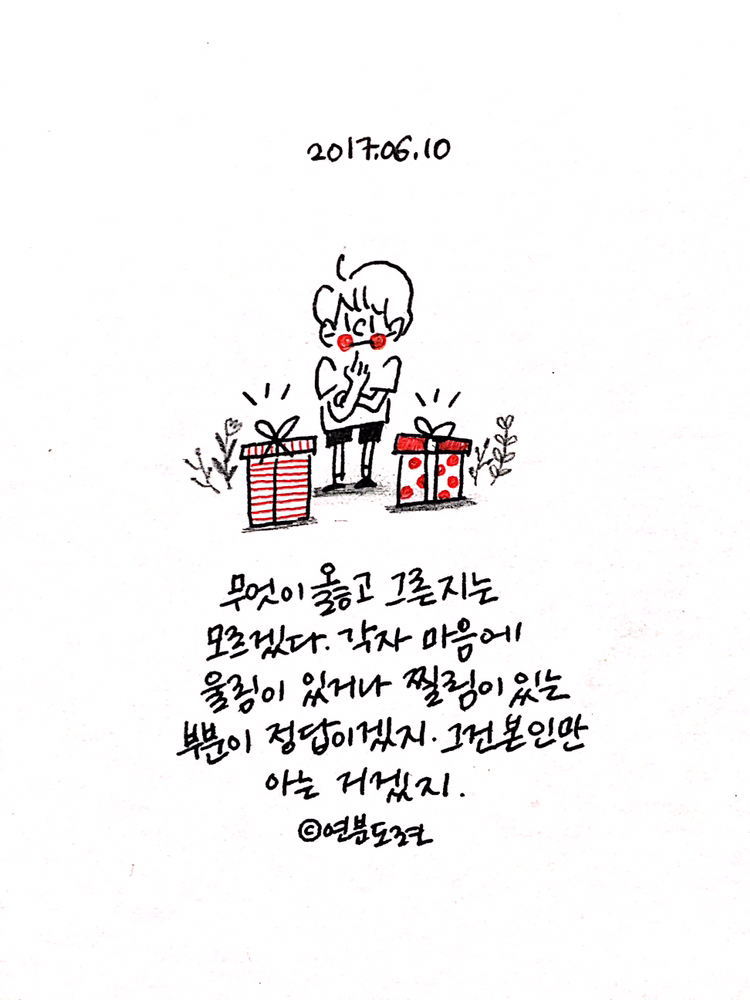 2017.06.10
무엇이 옳고 그른지는
모르겠다. 각자 마음에
울림이 있거나 찔림이 있는
부분이 정답이겠지. 그건 본인만
아는 거겠지.
©연분도련